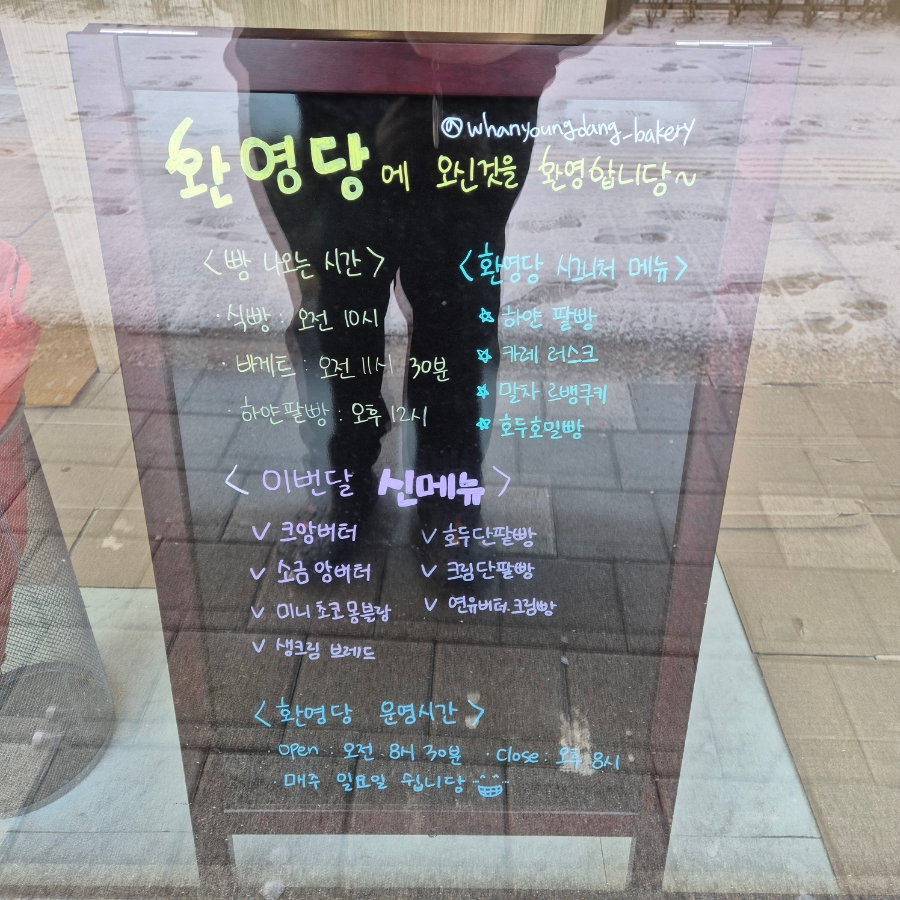 @whanyoungdang_bakery
환영당에 오신것을 환영합니당~
<빵 나오는 시간>
· 식빵 : 오전 10시
· 바게트 : 오전 11시 30분
· 하얀팥빵 : 오후 12시
<환영당 시그니처 메뉴>
☆ 하얀 팥빵
☆ 카레 러스크
☆ 말차 르뱅쿠키
☆ 호두호밀빵
<이번달 신메뉴>
✓ 크앙버터
✓ 소금 앙버터
✓ 미니 초코몽블랑
✓ 생크림 브레드
✓ 호두단팥빵
✓ 크림단팥빵
✓ 연유버터.크림빵
<환영당 운영시간>
· open : 오전 8시 30분 · Close : 오후 8시
· 매주 일요일 쉽니당